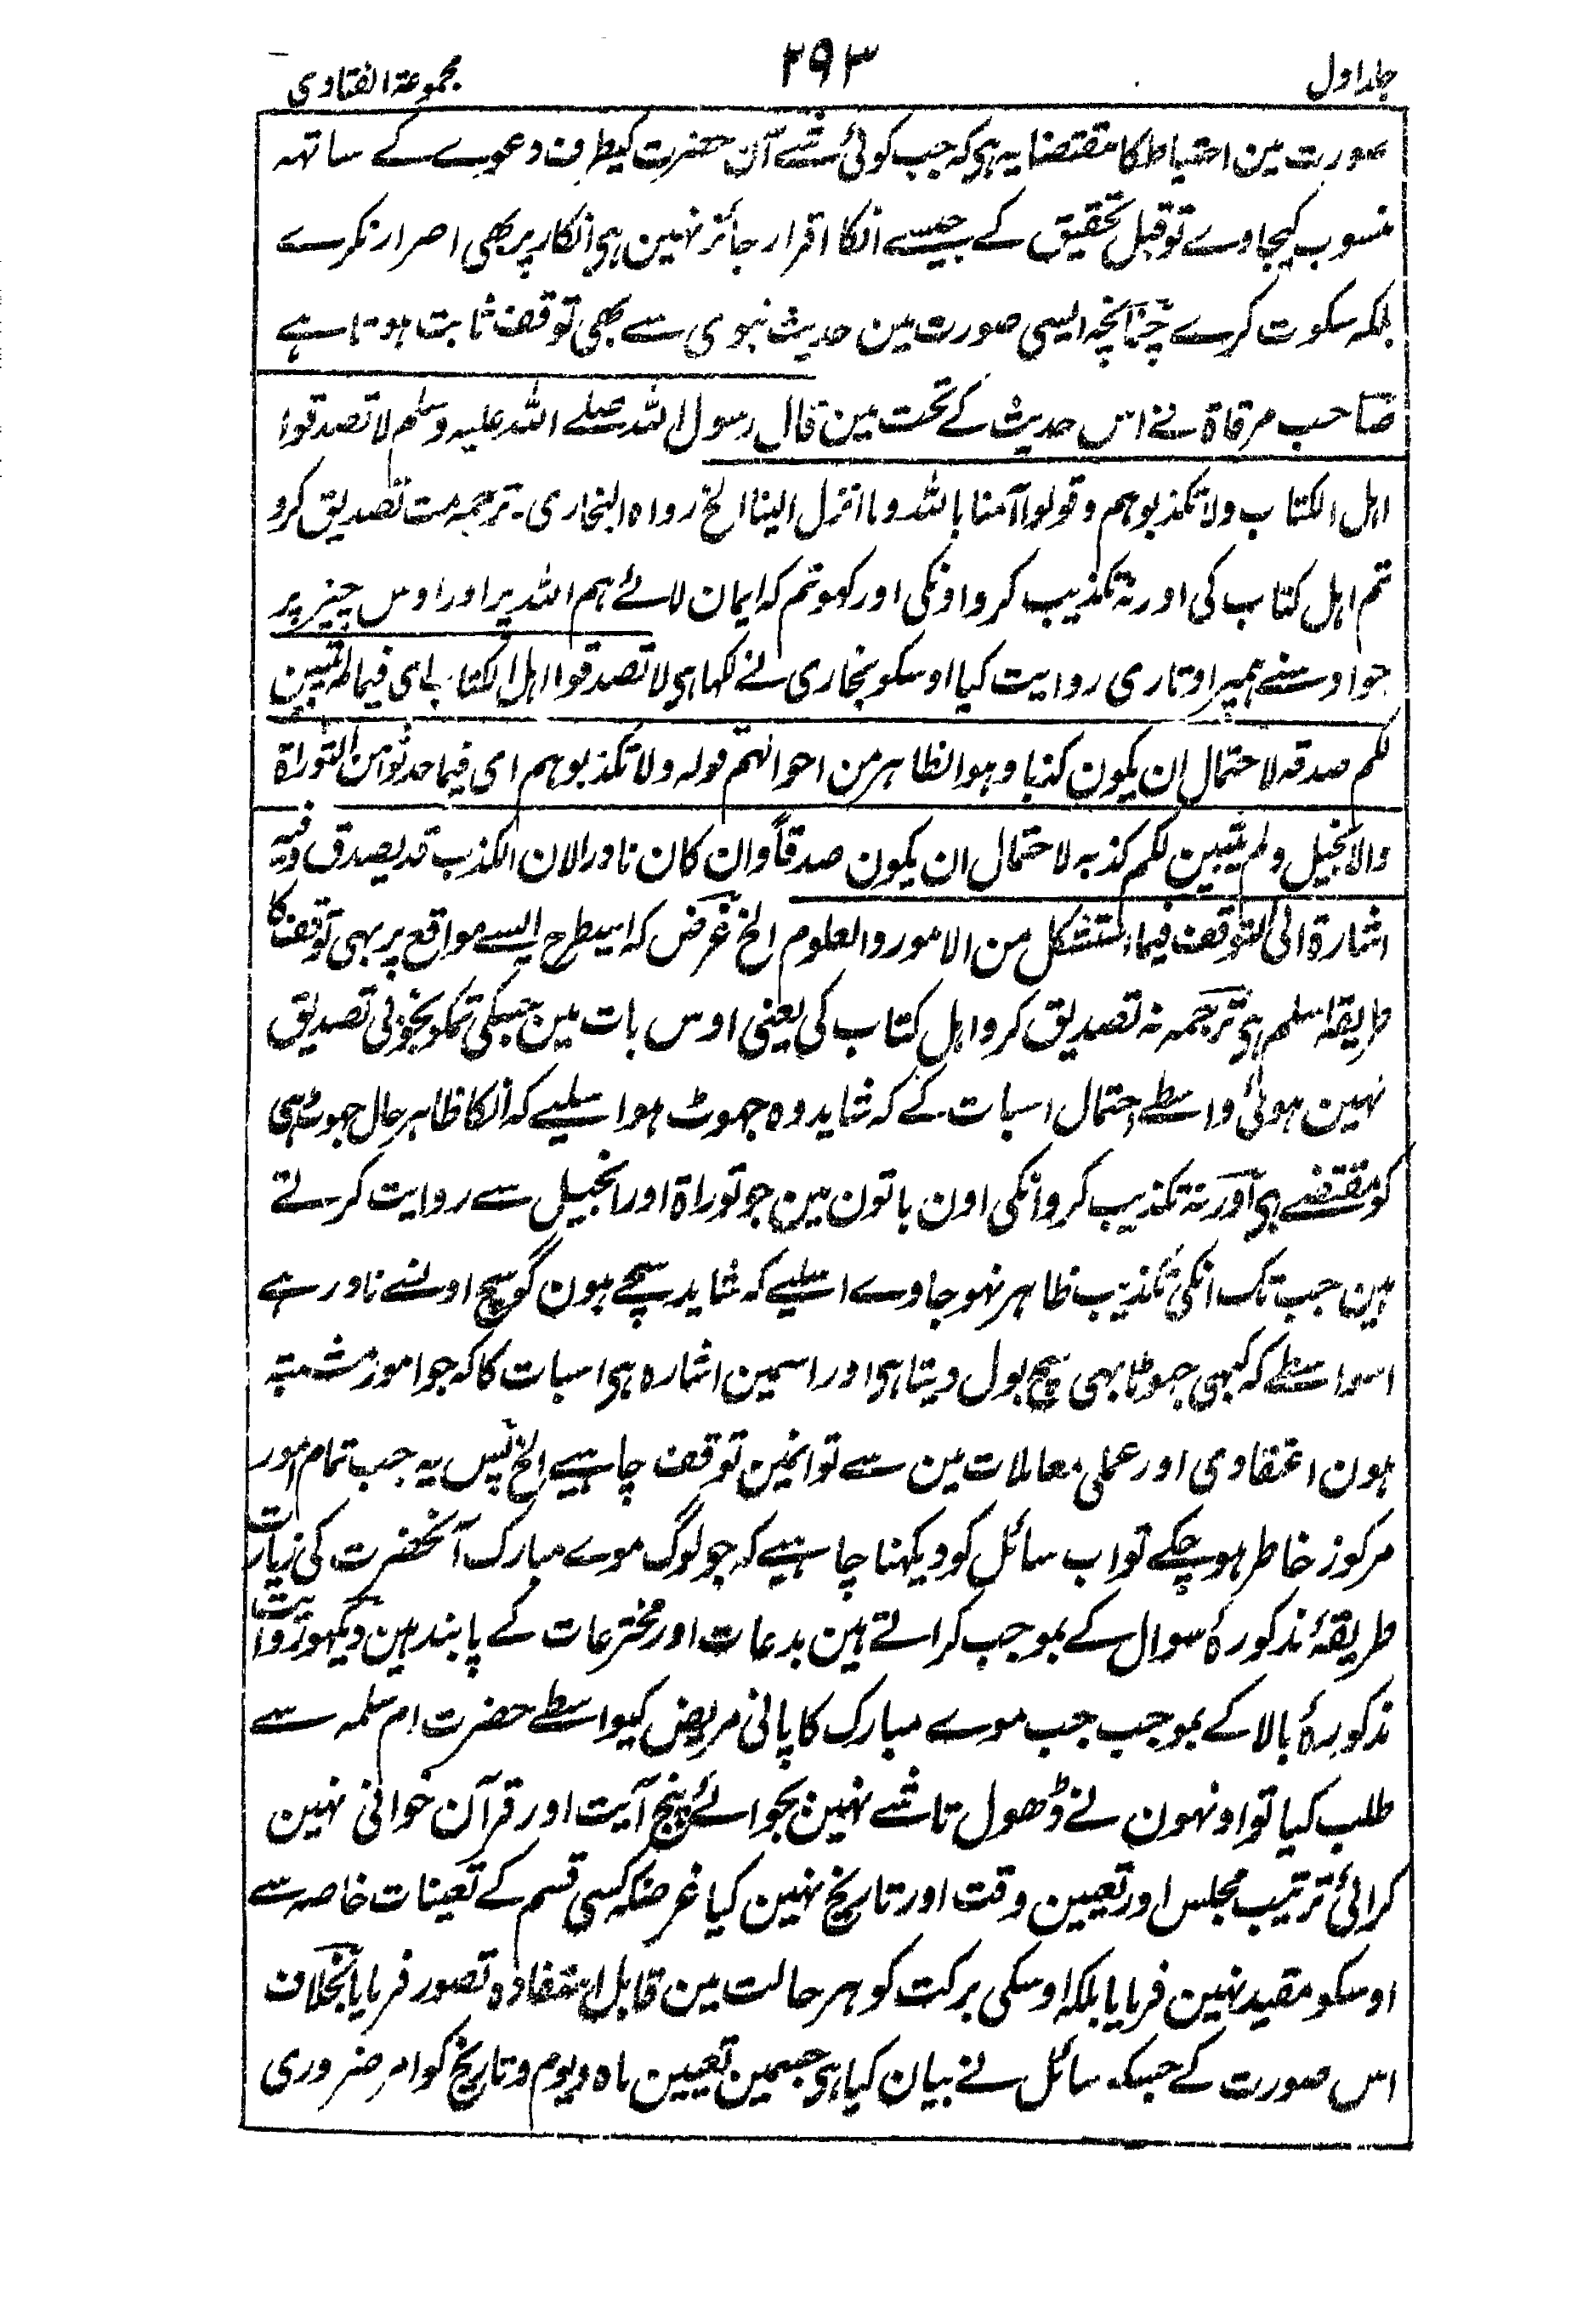 جلد اول
۲۹۳
مجموعۃ الفتاوی
صورت مین احتیاط کا مقتضا یہ ہی کہ جب کوئی شے آن حضرت کیطرف دعوے کے ساتھ
منسوب کیجاوے تو قبل تحقیق کے جیسے انکا اقرار جائز نہین ہی انکار پر بھی اصرار نکرے
بلکہ سکوت کرے چنانچہ ایسی صورت مین حدیث نبوی سے بھی توقف ثابت ہوتا ہے
صاحب مرقاۃ نے اس حدیث کے تحت مین قال رسول اللہ صلے اللہ علیہ وسلم لا تصدقوا
اہل الکتاب ولا تکذبوہم وقولوا آمنا باللہ وما انزل الینا الخ رواہ البخاری۔ ترجمہ مت تصدیق کرو
تم اہل کتاب کی اور نہ تکذیب کرو اونکی اور کہو تم کہ ایمان لائے ہم اللہ پر اور اوس چیز پر
جو اوسنے ہمپر اوتاری روایت کیا اوسکو بخاری نے لکہا ہی لا تصدقوا اہل الکتاب ای فیما لم یتبین
لکم صدقہ لاحتمال ان یکون کذبا وہو الظاہر من احوالہم قولہ ولا تکذبوہم ای فیما حدثوا من التوراۃ
والانجیل ولم یتبین لکم کذبہ لاحتمال ان یکون صدقاً وان کان نادرا لان الکذب قد یصدق وفیہ
اشارۃ الی التوقف فیما استشکل من الامور والعلوم الخ غرض کہ اسیطرح ایسے مواقع پر بہی توقف کا
طریقۂ اسلم ہی ترجمہ نہ تصدیق کرو اہل کتاب کی یعنی اوس بات مین جسکی تمکو بخوبی تصدیق
نہین ہوئی واسطے احتمال اسبات کے کہ شاید وہ جہوٹ ہو اسلیے کہ انکا ظاہر حال جہوٹ ہی
کو مقتضے ہی اور نہ تکذیب کرو انکی اون باتون مین جو توراۃ اور انجیل سے روایت کرتے
ہین جب تک انکی تکذیب ظاہر نہو جاوے اسلیے کہ شاید سچے ہون گو سچ اونسے نادر ہے
اسواسطے کہ کبہی جہوٹا بہی سچ بول دیتا ہی اور اسمین اشارہ ہی اسبات کا کہ جو امور مشتبہ
ہون اعتقادی اور عملی معاملات مین سے تو انمین توقف چاہیے الخ پس یہ جب تمام امور
مرکوز خاطر ہو چکے تو اب سائل کو دیکہنا چاہیے کہ جو لوگ موے مبارک آنحضرت کی زیارت
طریقۂ مذکورۂ سوال کے بموجب کراتے ہین بدعات اور مخترعات کے پابند ہین دیکہو روایت
مذکورۂ بالا کے بموجب جب موے مبارک کا پانی مریض کیواسطے حضرت ام سلمہ سے
طلب کیا تو اونہون نے ڈھول تاشے نہین بجوائے پنج آیت اور قرآن خوانی نہین
کرائی ترتیب مجلس اور تعیین وقت اور تاریخ نہین کیا غرضکہ کسی قسم کے تعینات خاصہ سے
اوسکو مقید نہین فرمایا بلکہ اوسکی برکت کو ہر حالت مین قابل استفادہ تصور فرمایا بخلاف
اس صورت کے جسکو سائل نے بیان کیا ہی جسمین تعیین ماہ و یوم و تاریخ کو امر ضروری